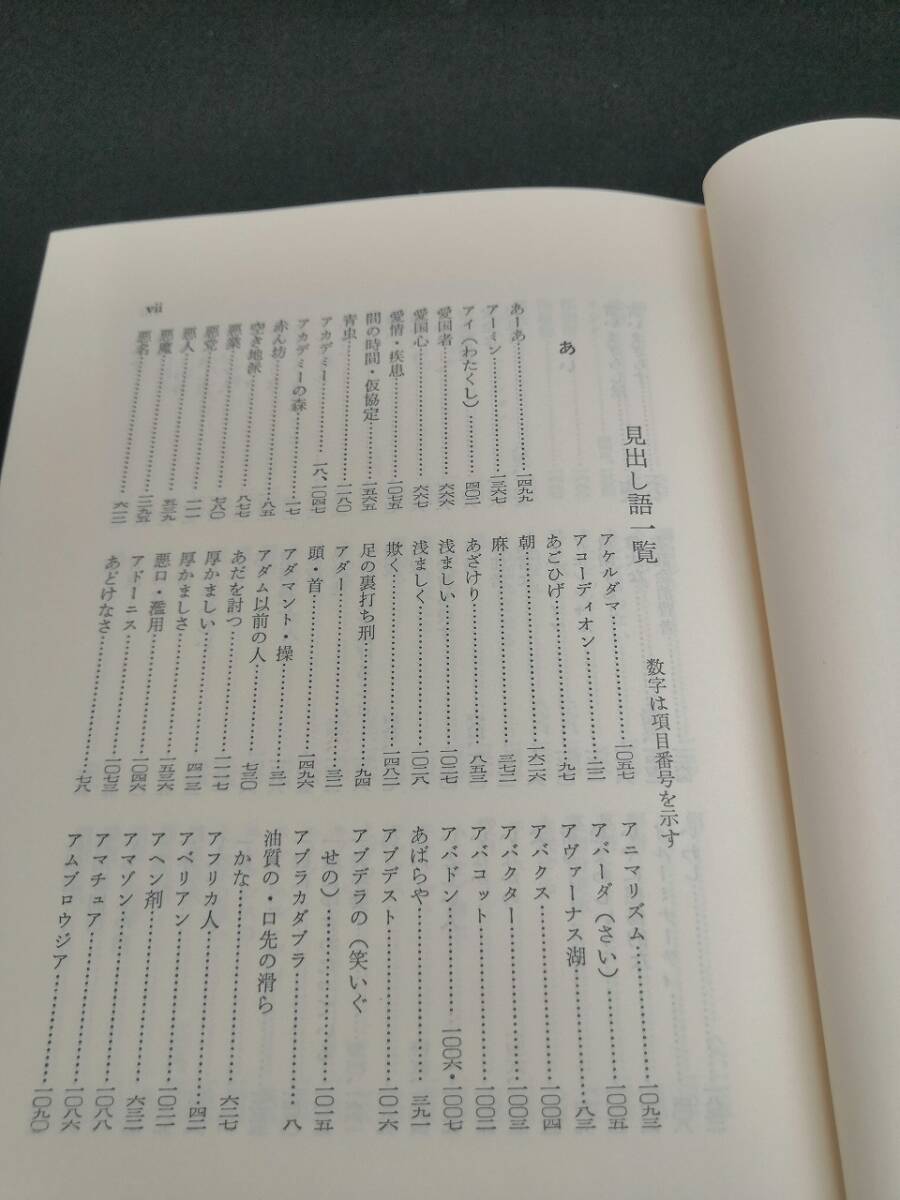 見出し語一覧　数字は項目番号を示す
あ
あーあ……一四九九
アーミン……一三六七
アイ（わたくし）……四〇二
愛国者……六六六
愛国心……六六七
愛情・疾患……一〇七五
間の時間・仮協定……一五六五
青虫……一一八〇
アカデミー……一八、一〇四七
アカデミーの森……一七
赤ん坊……八五
空き地派……八七七
悪業……七八〇
悪党……一一一
悪人……五三九
悪魔……一二九五
悪名……六一二
アケルダマ……一〇五七
アコーディオン……二二
あごひげ……九七
朝……一六二六
麻……三七二
あざけり……八五三
浅ましい……一〇二七
浅ましく……一〇二八
欺く……一四八二
足の裏打ち刑……九四
アダー……三二
頭・首……一四九六
アダマント・操……三一
アダム以前の人……七三〇
あだを討つ……一一一七
厚かましい……四一三
厚かましさ……一五三六
悪口・濫用……一〇四六
アドーニス……一〇七三
あどけなさ……七八
アニマリズム……一〇九三
アバーダ（さい）……一〇〇五
アヴァーナス湖……八三
アバクス……一〇〇四
アバクター……一〇〇三
アバコット……一〇〇二
アバドン……一〇〇六・一〇〇七
あばらや……三九一
アブデスト……一〇一六
アブデラの（笑いぐ
せの）……一〇一五
アブラカダブラ……八
油質の・口先の滑ら
かな……六二七
アフリカ人……四二
アベリアン……一〇二一
アヘン剤……六三二
アマゾン……一〇八八
アマチュア……一〇八六
アムブロウジア……一〇九〇
vii